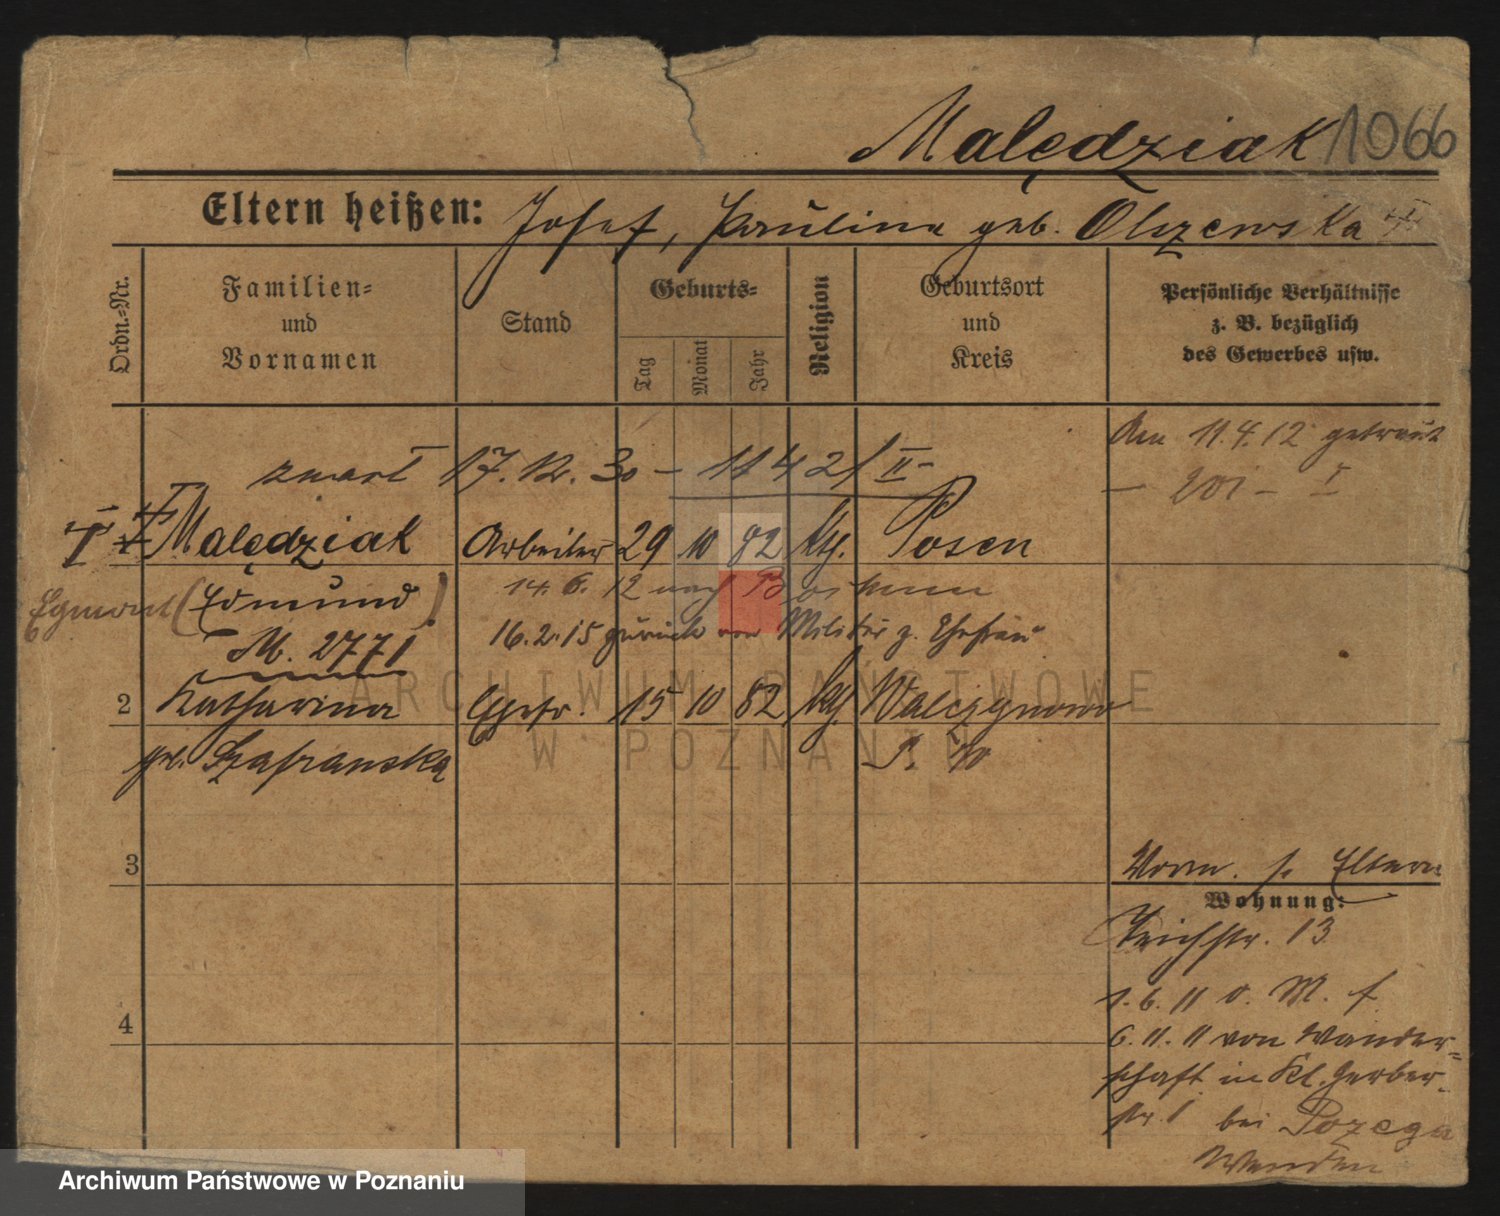 Malędziak 1066
Eltern heißen: Josef, Paulina geb. Olszewska
Ordn.-Nr.
Familien- und Vornamen
Stand
Geburts-
Tag
Monat
Jahr
Religion
Geburtsort und Kreis
Persönliche Verhältnisse
z. B. bezüglich
des Gewerbes usw.
Am 11.4.12 getraut
zmarł 17.12.30 - 11 4 21 II -
- 201 - I
I Malędziak Arbeiter 29 10 82 kth. Posen
Egmont (Edmund) 14.6.12 nach Bochum
16.2.15 zurück vom Militär z. Ehefrau
M. 2771
2 Katharina Ehefr. 15 10 82 kth Walczynowo
geb. Szafranska
ARCHIWUM PAŃSTWOWE
W POZNANIU
3
Eltern
Wohnung:
Teichstr. 13
1.6.11 v. M. f.
6.11.11 von Wander-
schaft in Kl. Gerber-
str. 1 bei Pozega
4
Archiwum Państwowe w Poznaniu